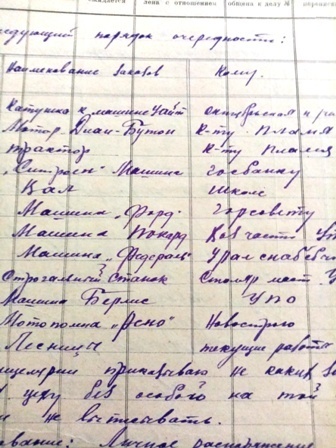 ожидается лена с отношением обкома к делу №
следующий порядок очередности:
Наименование заказов Кому.
Катушка к машине Уайт октябрьской
Мотор Дион-Бутон К-ту Пламя
трактор К-ту Пламя
„Ситроен" Машина Госбанку
Вал Школе
Машина „Форд" Горсовету
Машина Покард части
Машина „Федераль" Уралснаб
Строгальный Станок Столяр маст.
Машина Берлис УПО
Мотопомпа „Рено" Новострою
Лесницы текущие работы
приказываю не каких
цеху без особого на той
и не выписывать.
Личное распоряжение